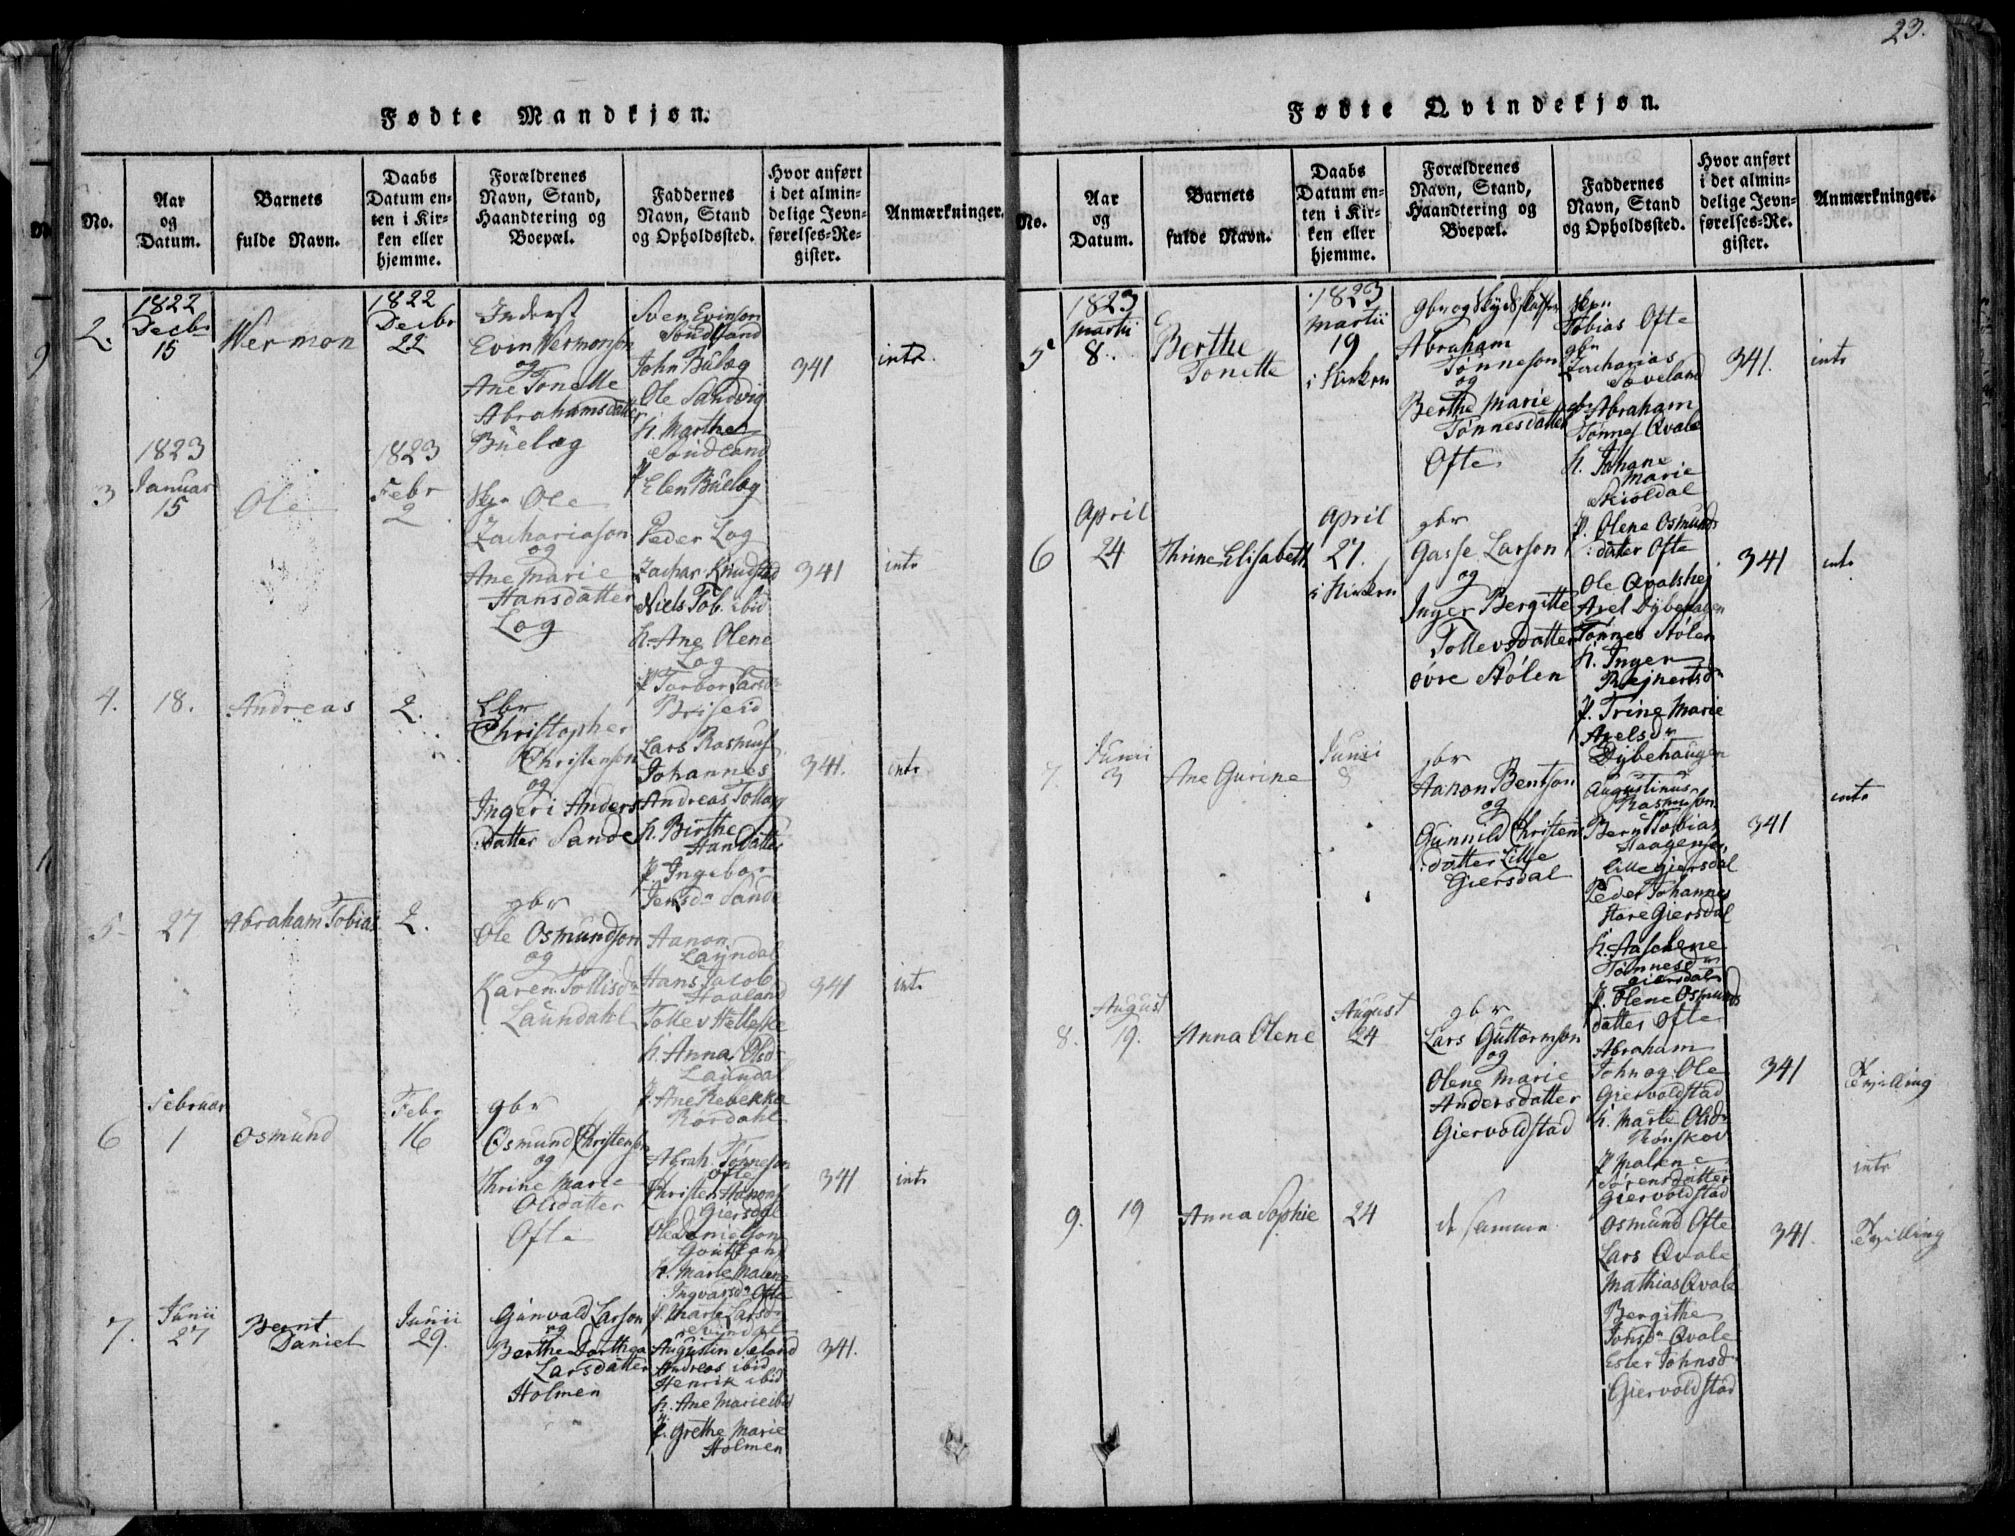 23.
Fødte Mandkjøn.
No.
Aar
og
Datum.
Barnets
fulde Navn.
Daabs
Datum en-
ten i Kir-
ken eller
hjemme.
Forældrenes
Navn, Stand,
Haandtering og
Boepæl.
Faddernes
Navn, Stand
og Opholdssted.
Hvor anført
i det almin-
delige Jevn-
førelses-Re-
gister.
Anmærkninger.
2.
1822
Decbr
15
Wermon
1822
Decbr
22
Inderst
Evin Wermonson
og
Ane Tonette
Abrahamsdatter
Büelog
Sven Evinson
Sondland
John Büelog
Ole Sandvig
K. Marthe
Sondland
P. Elen Büelog
341
intr
3
1823
Januar
15
Ole
1823
Febr
2
Ole
Zachariason
og
Ane Marie
Hansdatter
Log
Peder Log
Zachar. Knudstad
Niels Tob. ibid
K. Ane Olene
Log
P Torbor Larsdr
Briseid
341
intr
4.
18.
Andreas
2.
Christopher
Christenson
og
Ingeri Anders
:datter Sande
Lars Rasmus
Johannes
Andreas
K. Birthe
Hansdatter
P. Ingebor
Jensdr Sande
341.
intr
5
27
Abraham Tobias
2.
gbr
Ole Osmundson
og
Karen Tollisdr
Laundahl
Aanon
Laundal
Hans Jacob
Hovland
Tollev Helleske
K. Anna Olsd
Laundal
P. Ane Rebekka
Rørdahl
341
intr
6
Februar
1
Osmund
Febr
16
gbr
Osmund Christenson
og
Thrine Marie
Olsdatter
Ofte
Abrah. Tønneson
Ofte
Christen Aanons
Giersdal
Ole Danielson
K. Marie Malene
Ingvarsdr Ofte
P. Marte Larsdr
341
intr
7.
Junii
27
Bernt
Daniel
Junii
29.
Gunvald Larson
og
Berthe Dorthea
Larsdatter
Holmen
Augustin Sæland
Andreas ibid
Henrik ibid
K. Ane Marie ibid
P. Grethe Marie
Holmen
341.
Fødte Qvindekjøn.
No.
Aar
og
Datum.
Barnets
fulde Navn.
Daabs
Datum en-
ten i Kir-
ken eller
hjemme.
Forældrenes
Navn, Stand,
Haandtering og
Boepæl.
Faddernes
Navn, Stand
og Opholdssted.
Hvor anført
i det almin-
delige Jevn-
førelses-Re-
gister.
Anmærkninger.
5
1823
Martii
8.
Berthe
Tonette
1823
Martii
19
i Kirken
gbr og Skydskaffer
Abraham
Tønneson
og
Berthe Marie
Tønnesdatter
Ofte
Tobias Ofte
Zacharias
Soveland
Abraham
Tønnes Qvale
K. Johane
Marie
Skioldal
P. Olene Osmunds
:datter Ofte
341.
intr
6
April
24
Thrine Elisabeth
April
27.
i Kirken
gbr
Gasse Larson
og
Inger Bergitte
Tollevsdatter
øvre Stølen
Ole Qvalshej
Axel Dybehagen
Tønnes Stølen
K. Inger
Rejnertsdr
P. Trine Marie
Axelsdr
Dybehaugen
341
intr
7.
Junii
3
Ane Gurine
Junii
8
gbr
Aanon Bentson
og
Gunnild Christens
:datter Lille
Giersdal
Augustinus
Rasmuson
Bernt Tobias
Haagens.
Lille Giersdal
Peder Johannes
Store Giersdal
K. Aaschene
Tønnesdr
Giersdal
P. Olene Osmunds
datter Ofte
341
intr
8.
August
19.
Anna Olene
August
24
gbr
Lars Guttormson
og
Olene Marie
Andersdatter
Giervoldstad
Abraham
John og Ole
Giervoldstad
K. Marte Olsdr
Rønskov
P Malene
Sørensdatter
Giervoldstad
341
Tvilling
intr
9.
19
Anna Sophie
24
de samme
Osmund Ofte
Lars Qvale
Mathias Qvale
Bergithe
Johsdr Qvale
Ester Johnsd
Giervoldstad
341.
Tvilling